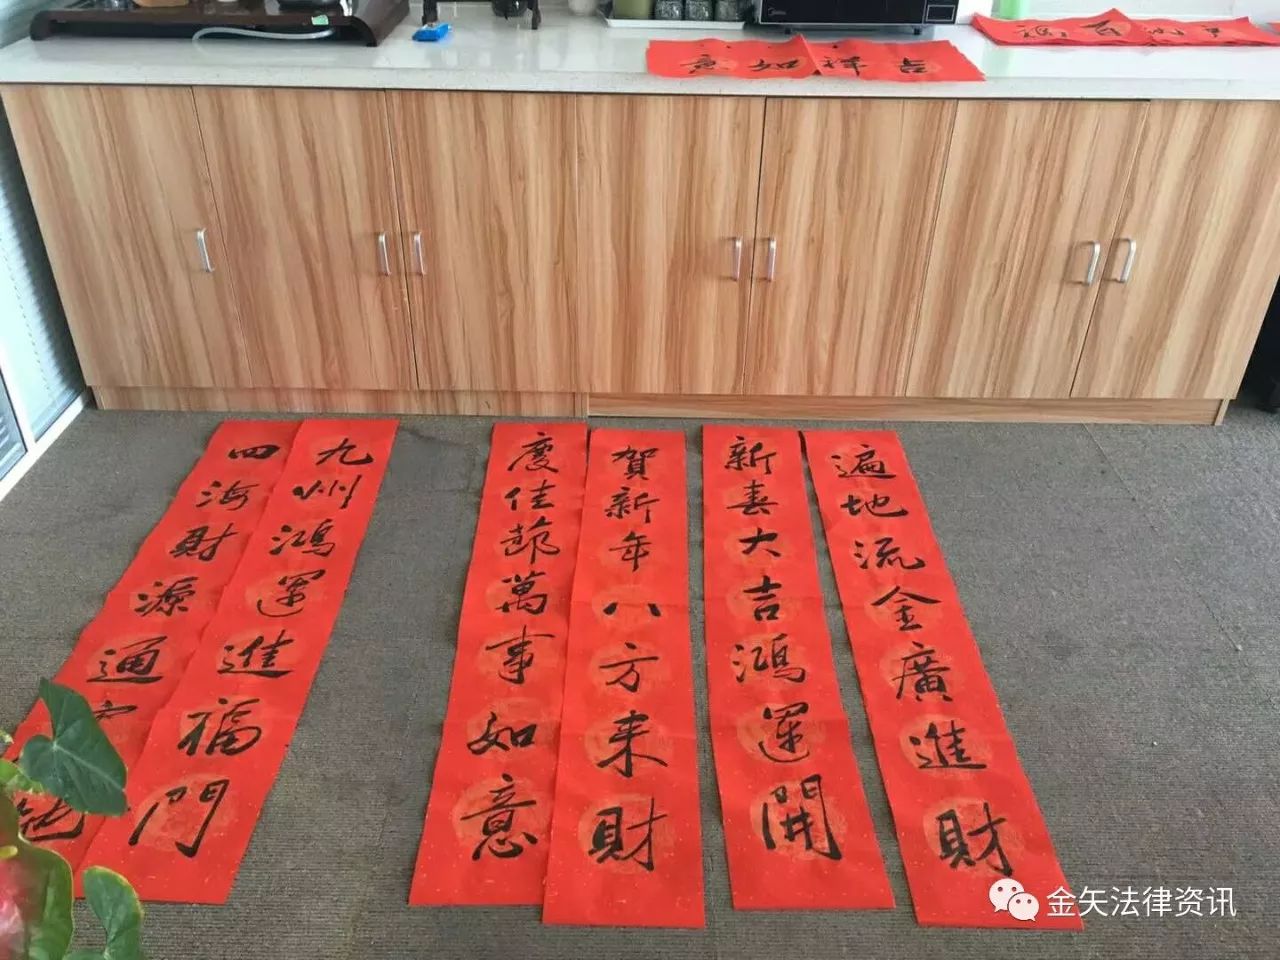 吉祥如意
遍地流金廣進財
新春大吉鴻運開
賀新年八方来財
慶佳節萬事如意
九州鴻運進福門
四海財源通
金矢法律资讯